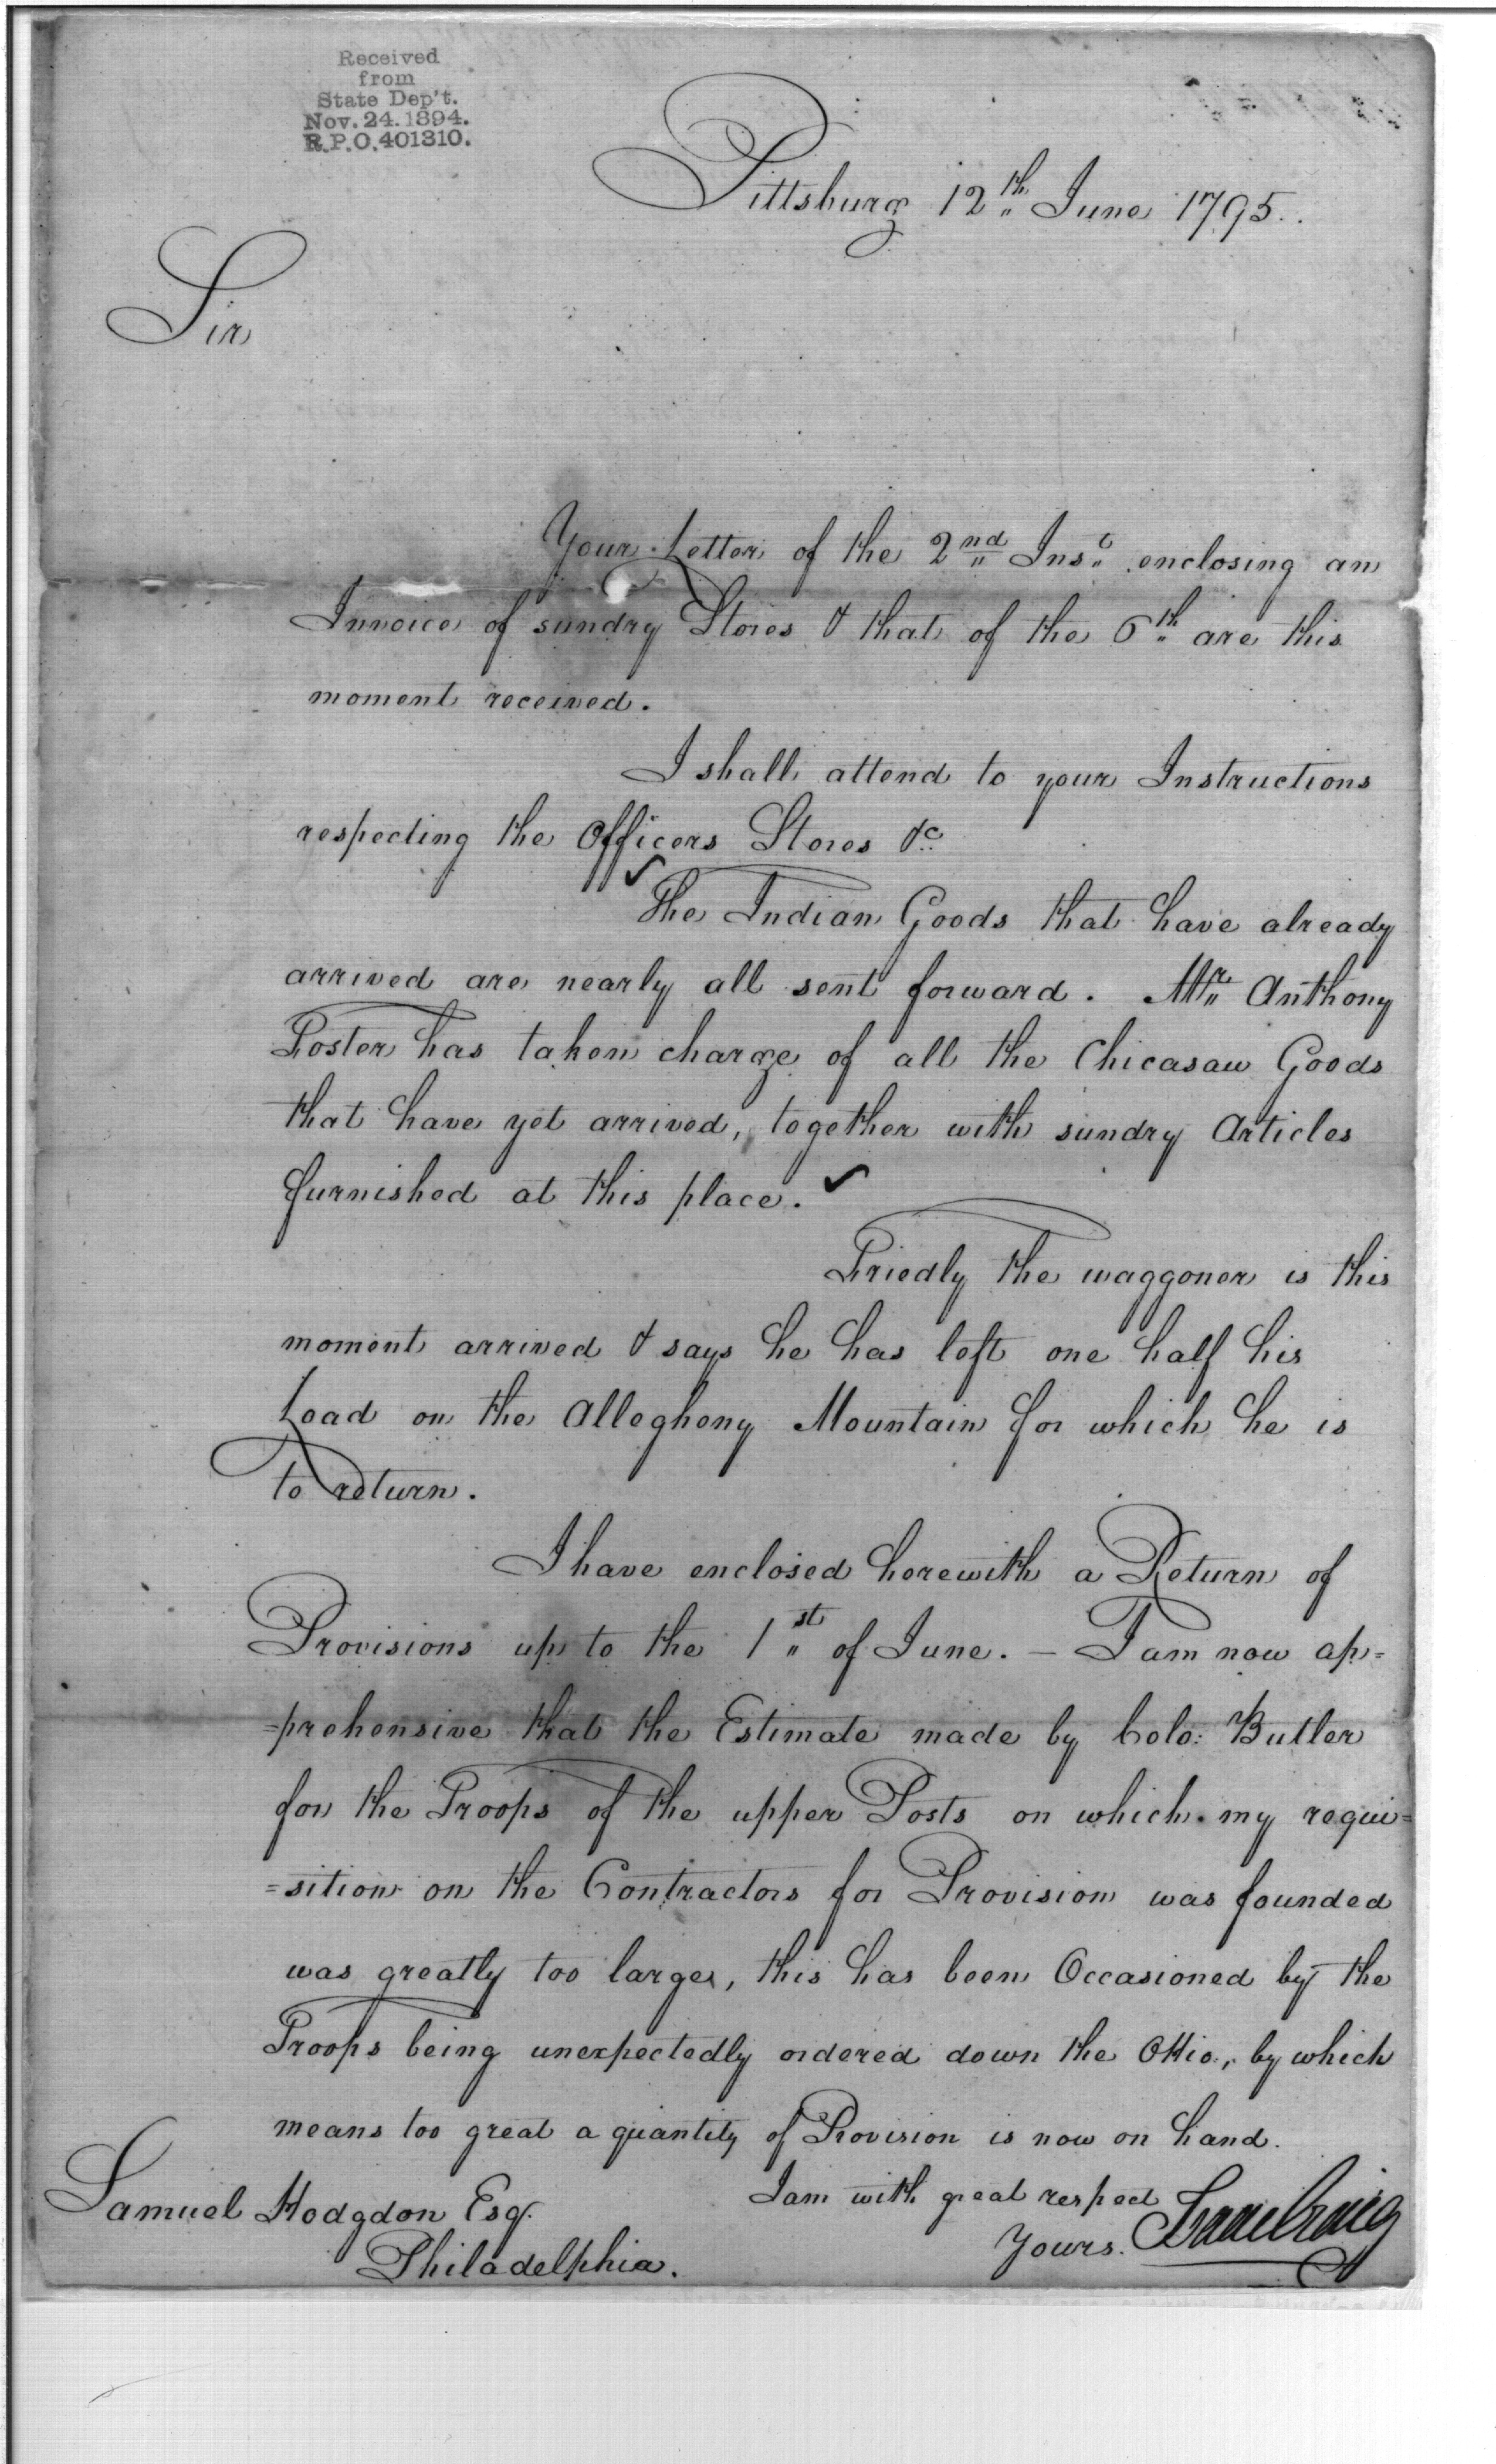 Received
from
State Dep't.
Nov. 24. 1894.
R.P.O. 401310.
Pittsburg 12th June 1795.
Sir
Your Letter of the 2nd Inst. enclosing an
Invoice of sundry Stores & that of the 6th are this
moment received.
I shall attend to your Instructions
respecting the Officers Stores &c.
The Indian Goods that have already
arrived are nearly all sent forward. Mr. Anthony
Foster has taken charge of all the Chicasaw Goods
that have yet arrived, together with sundry Articles
furnished at this place.
Friedly the waggoner is this
moment arrived & says he has left one half his
Load on the Alleghony Mountain for which he is
to return.
I have enclosed herewith a Return of
Provisions up to the 1st of June. – I am now ap=
=prehensive that the Estimate made by Colo: Butler
for the Troops of the upper Posts on which my requi=
=sition on the Contractors for Provision was founded
was greatly too large, this has been Occasioned by the
Troops being unexpectedly ordered down the Ohio, by which
means too great a quantity of Provision is now on hand.
I am with great respect
Yours. Isaac Craig
Samuel Hodgdon Esq.
Philadelphia.